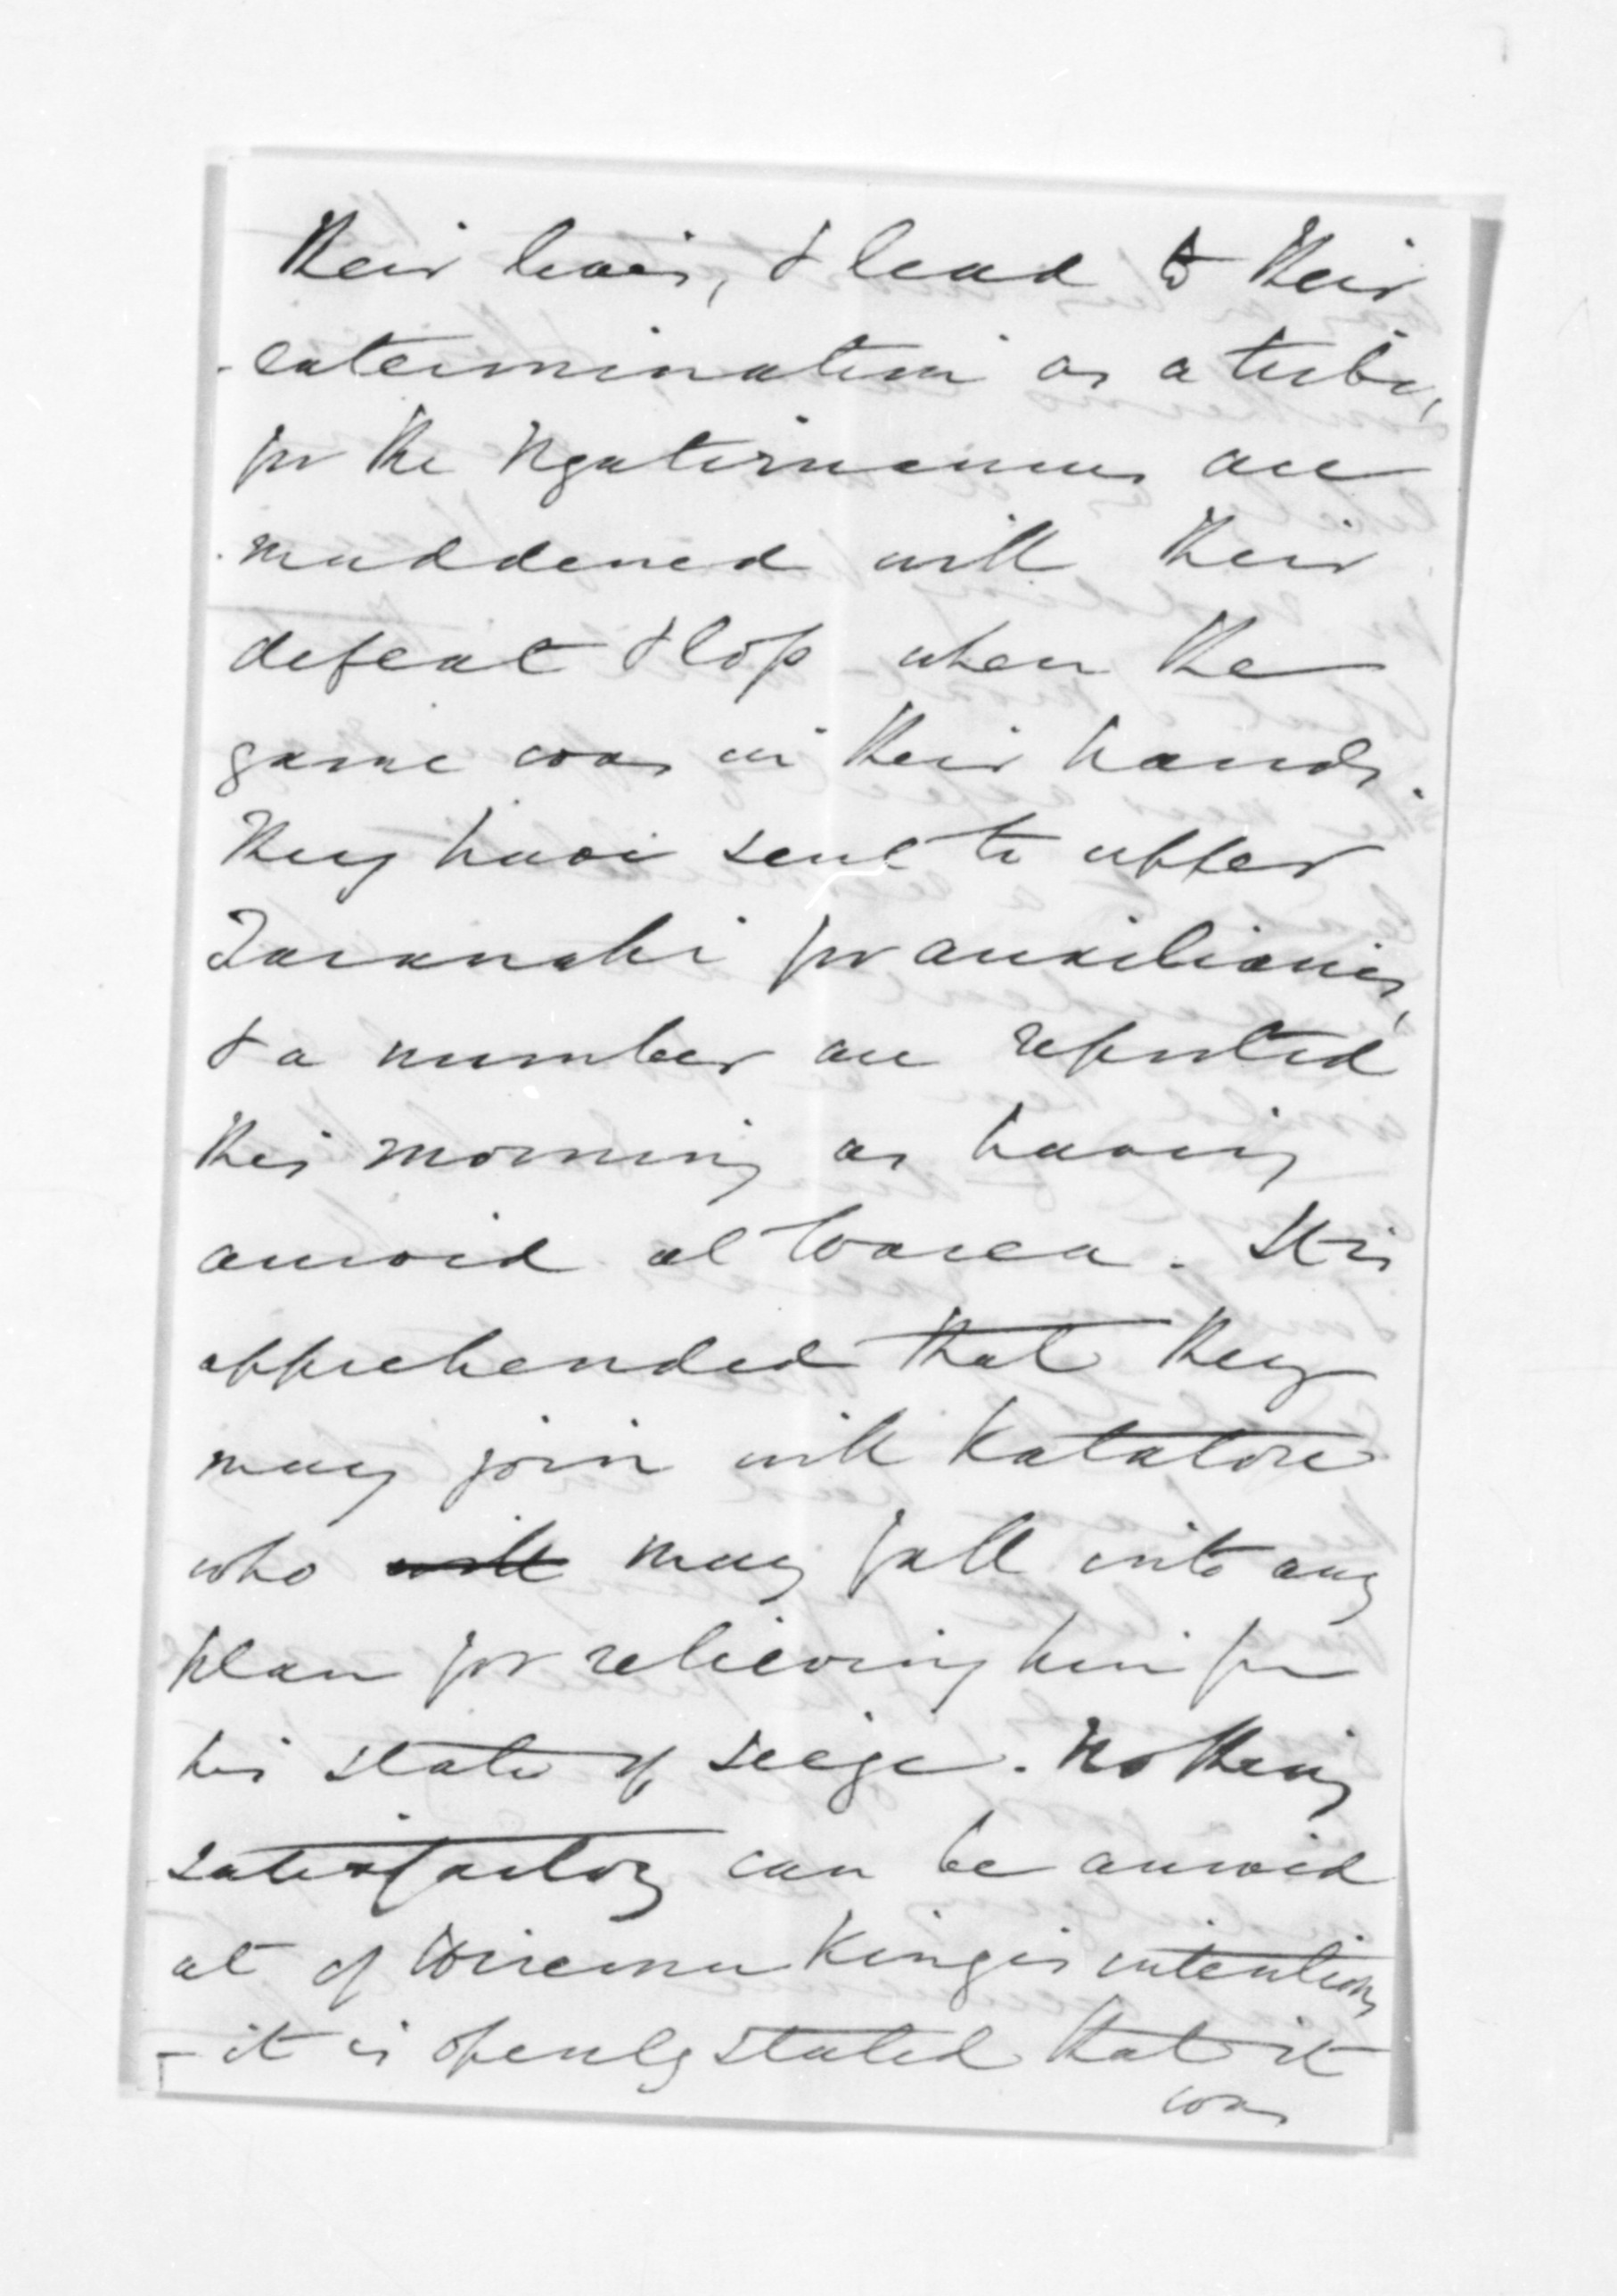 their lives, & lead to their
extermination as a tribe,
for the Ngatiruanuis are
maddened with their
defeat & loss when the
game was in their hands.
They have sent to upper
Taranaki for auxiliaries,
& a number are reported
this morning as having
arrived at Warea. It is
apprehended that they
may join with Katatore
who will may fall into any
plan for relieving him from
his state of seige. Nothing
satisfactory can be arrived
at of Wiremu Kingi's intentions
- it is openly stated that it
was